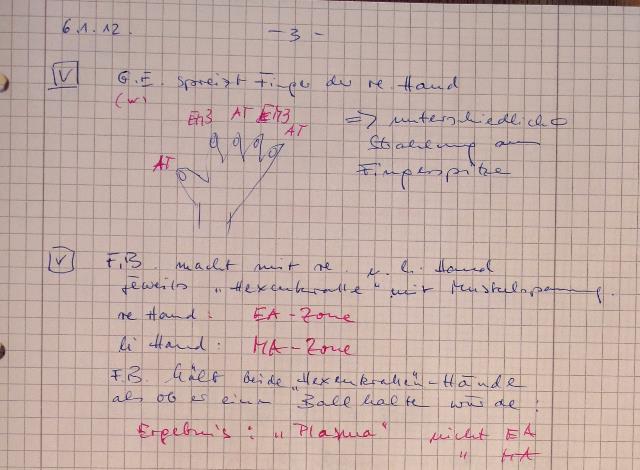 6.1.12. - 3 -
V G.E. spreizt Finger der re. Hand
(w)
EA3 AT EA3 AT
AT
=> unterschiedliche
Strahlung am
Fingerspitze
V F.B. macht mit re. u. li. Hand
jeweils "Hexenkralle" mit Muskelspannung.
re Hand: EA-Zone
li Hand: HA-Zone
F.B. hält beide "Hexenkrallen"-Hände
als ob es einen Ball halten würde:
Ergebnis: "Plasma" nicht EA
" HA